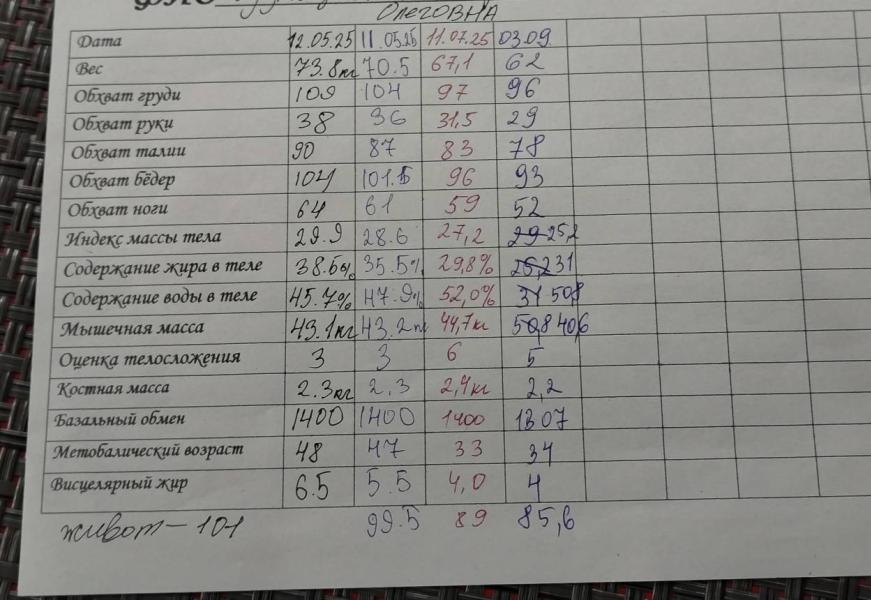 ОЛЕГОВНА
Дата 12.05.25 11.05.25 11.07.25 03.09.
Вес 73.8кг 70.5 67,1 62
Обхват груди 109 104 97 96
Обхват руки 38 36 31,5 29
Обхват талии 90 87 83 78
Обхват бёдер 104 101.5 96 93
Обхват ноги 64 61 59 52
Индекс массы тела 29.9 28.6 27,2 29 25,2
Содержание жира в теле 38.6% 35.5% 29,8% 25,2 31
Содержание воды в теле 45.7% 47.9% 52,0% 31 50,8
Мышечная масса 43.1кг 43.2кг 44,7кг 50,8 40,6
Оценка телосложения 3 3 6 5
Костная масса 2.3кг 2,3 2,4кг 2,2
Базальный обмен 1400 1400 1400 1307
Метоболический возраст 48 47 33 34
Висцелярный жир 6.5 5.5 4,0 4
живот - 101 99.5 89 85,6